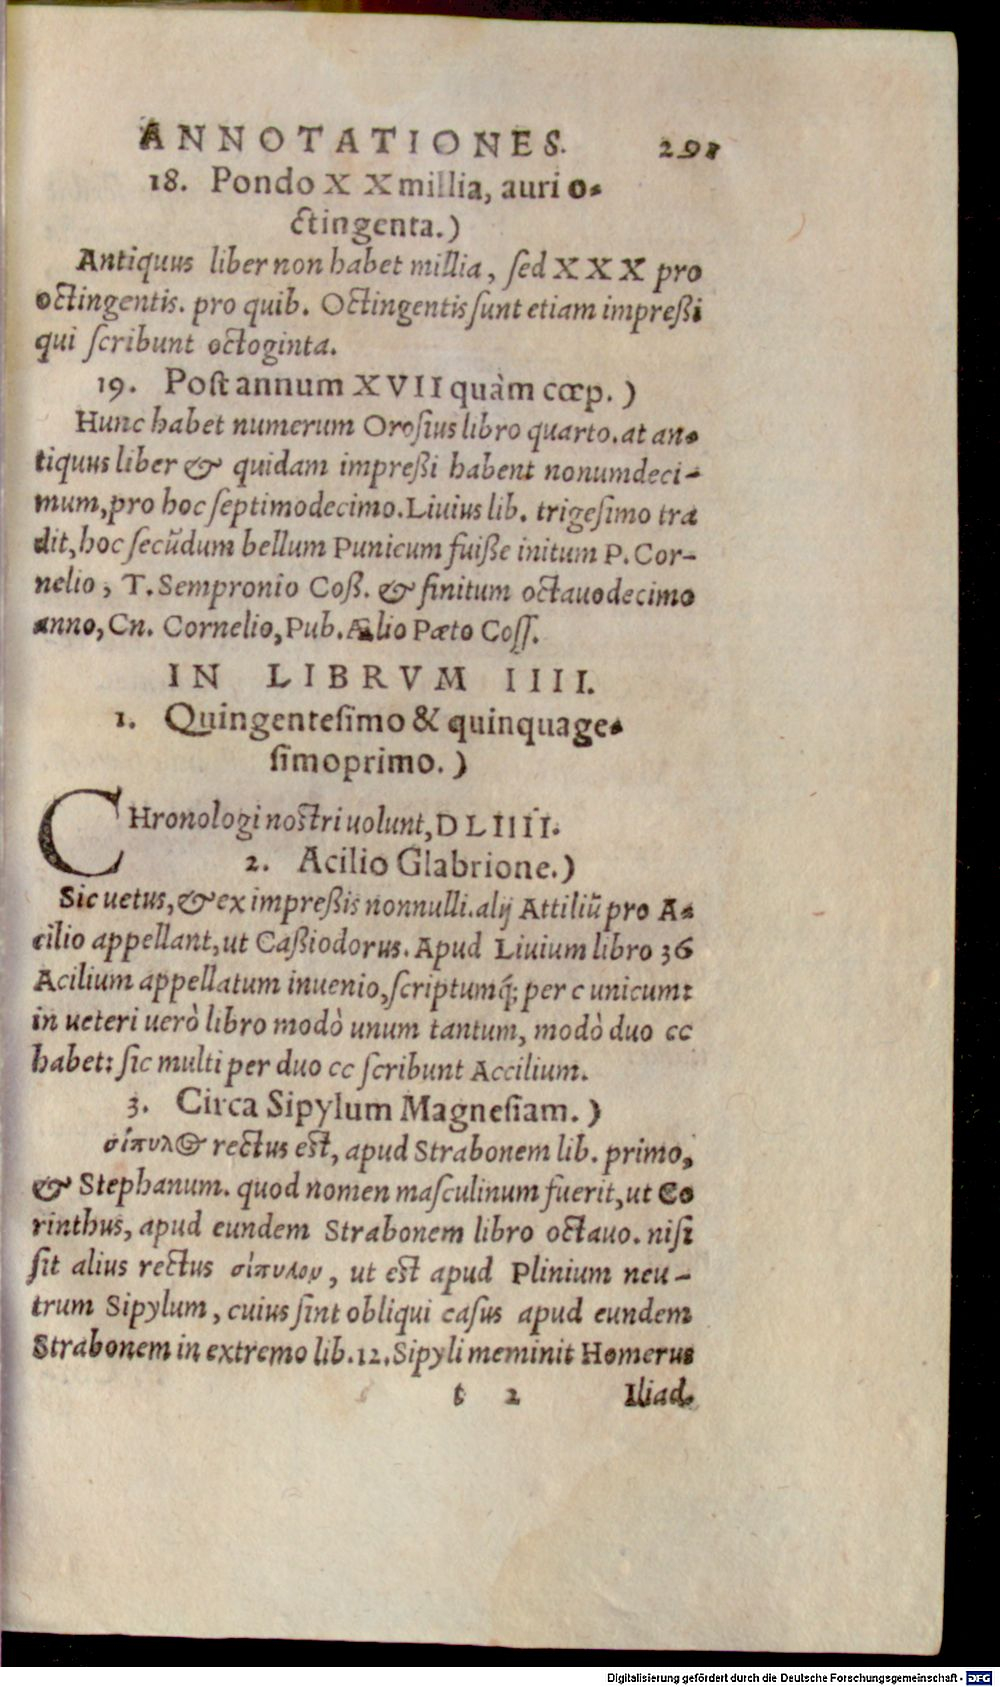 ANNOTATIONES. 291
18. Pondo X X millia, auri o-
ctingenta.)
Antiquus liber non habet millia, ſed X X X pro
octingentis. pro quib. Octingentis ſunt etiam impreßi
qui ſcribunt octoginta.
19. Poſt annum XVII quàm cœp.)
Hunc habet numerum Oroſius libro quarto. at an-
tiquus liber & quidam impreßi habent nonumdeci-
mum, pro hoc ſeptimodecimo. Liuius lib. trigeſimo tra
dit, hoc ſecūdum bellum Punicum fuiße initum P. Cor-
nelio, T. Sempronio Coß. & finitum octauodecimo
anno, Cn. Cornelio, Pub. Ælio Pæto Coſſ.
IN LIBRVM IIII.
1. Quingenteſimo & quinquage-
ſimoprimo.)
CHronologi noſtri uolunt, D L IIII.
2. Acilio Glabrione.)
Sic uetus, & ex impreßis nonnulli. alij Attiliū pro A-
cilio appellant, ut Caßiodorus. Apud Liuium libro 36
Acilium appellatum inuenio, ſcriptumq́; per c unicum:
in ueteri uerò libro modò unum tantum, modò duo cc
habet: ſic multi per duo cc ſcribunt Accilium.
3. Circa Sipylum Magneſiam.)
σίπυλος rectus eſt, apud Strabonem lib. primo,
& Stephanum. quod nomen maſculinum fuerit, ut Co
rinthus, apud eundem Strabonem libro octauo. niſi
ſit alius rectus σίπυλον, ut eſt apud Plinium neu-
trum Sipylum, cuius ſint obliqui caſus apud eundem
Strabonem in extremo lib. 12. Sipyli meminit Homerus
t 2 Iliad.
Digitalisierung gefördert durch die Deutsche Forschungsgemeinschaft - DFG